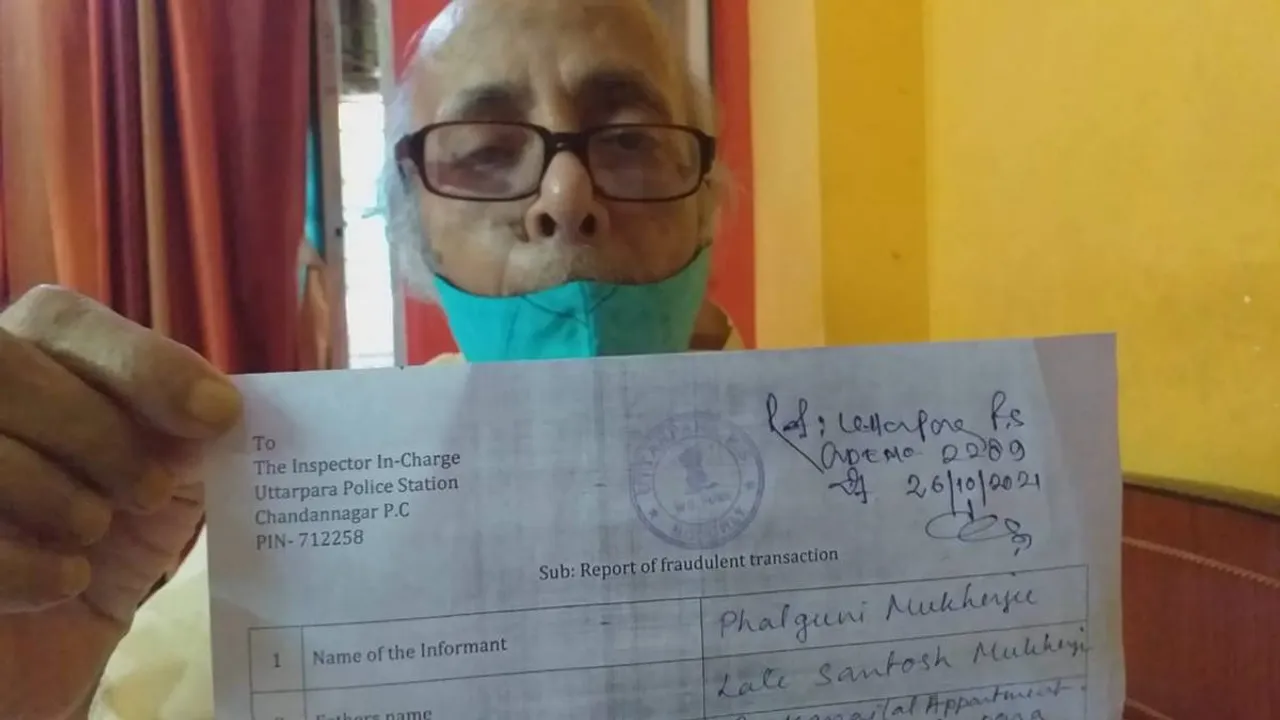 To
The Inspector In-Charge
Uttarpara Police Station
Chandannagar P.C
PIN- 712258
Ref: Uttarpara P.S
GDE No 2289
26/10/2021
Sub: Report of fraudulent transaction
1 Name of the Informant Phalguni Mukherjee
Fathers name Late Santosh Mukherji
Appartment